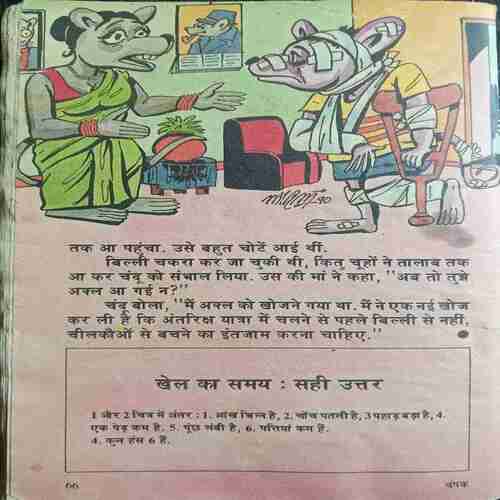 तक आ पहुंचा. उसे बहुत चोटें आई थीं.
बिल्ली चकरा कर जा चुकी थी, किंतु चूहों ने तालाब तक
आ कर चंदू को संभाल लिया. उस की मां ने कहा, ''अब तो तुझे
अक्ल आ गई न?''
चंदू बोला, ''मैं अक्ल को खोजने गया था. मैं ने एक नई खोज
कर ली है कि अंतरिक्ष यात्रा में चलने से पहले बिल्ली से नहीं,
चीलकौओं से बचने का इंतजाम करना चाहिए.''
खेल का समय : सही उत्तर
1 और 2 चित्र में अंतर : 1. आंख भिन्न है, 2. चोंच पतली है, 3 पहाड़ बड़ा है, 4.
एक पेड़ कम है. 5. पूंछ लंबी है, 6. पत्तियां कम हैं.
4. कुल हंस 6 हैं.
66
चंपक